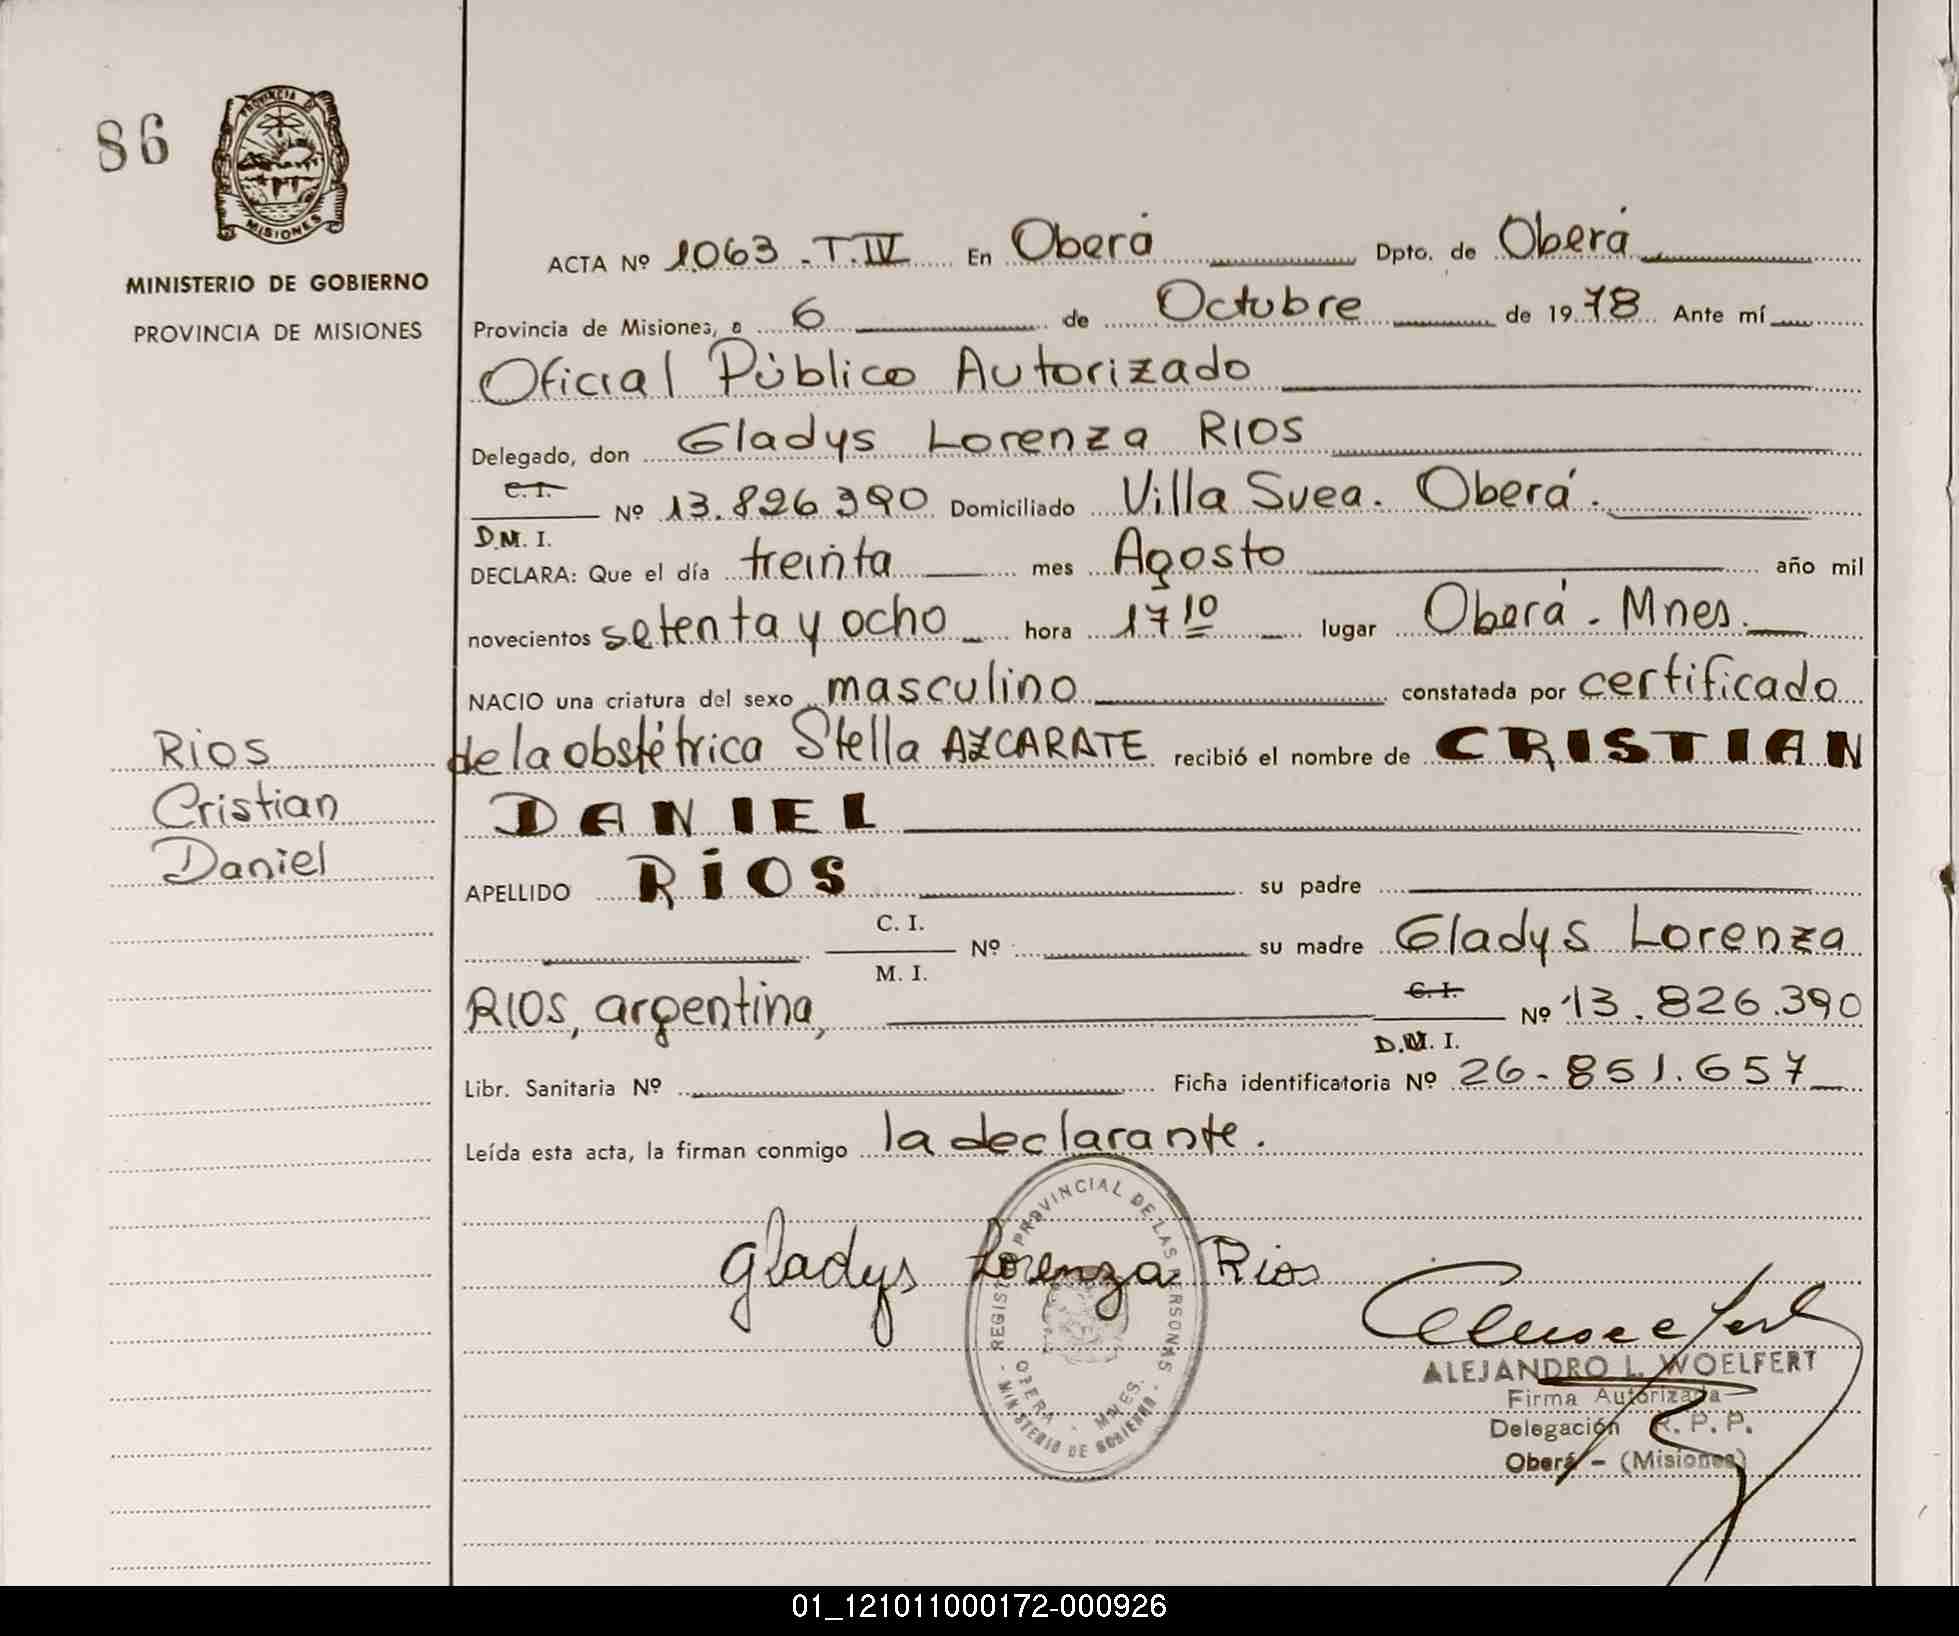 86
PROVINCIA DE
MISIONES
MINISTERIO DE GOBIERNO
PROVINCIA DE MISIONES
ACTA Nº 1063 - T. IV En Oberá Dpto. de Oberá
Provincia de Misiones, a 6 de Octubre de 1978 Ante mí
Oficial Público Autorizado
Delegado, don Gladys Lorenza RIOS
C. I.
Nº 13.826.390 Domiciliado Villa Svea. Oberá.
D.M. I.
DECLARA: Que el día treinta mes Agosto año mil
novecientos setenta y ocho hora 17 10 lugar Oberá - Mnes.
NACIO una criatura del sexo masculino constatada por certificado
de la obstétrica Stella AZCARATE recibió el nombre de CRISTIAN
DANIEL
Rios
Cristian
Daniel
APELLIDO RIOS su padre
C. I.
Nº su madre Gladys Lorenza
M. I.
RIOS, argentina,
C. I.
Nº 13.826.390
D.M. I.
Libr. Sanitaria Nº Ficha identificatoria Nº 26-851.657
Leída esta acta, la firman conmigo la declarante.
Gladys Lorenza Rios
REGISTRO PROVINCIAL DE LAS PERSONAS
OBERA - MNES.
- MINISTERIO DE GOBIERNO -
ALEJANDRO L. WOELFERT
Firma Autorizada
Delegación R. P. P.
Oberá - (Misiones)
01_121011000172-000926